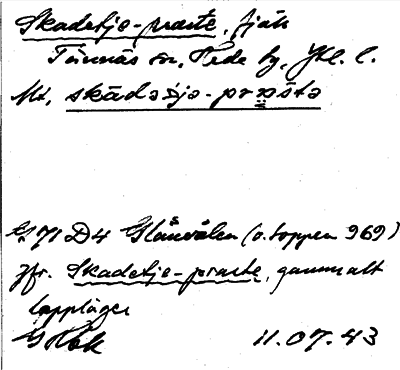 Skadetjo-praste, fjäll
Tännäs sn, Hede tg, Jtl. l.
Ut. skādəšjo-præštə
71 D4 Glänvålen (o. toppen 969)
jfr. Skadetjo-praste, gammalt
lappläger
11.07.43